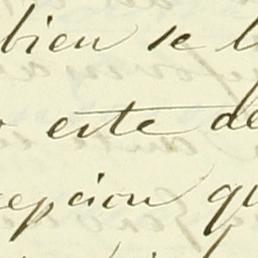 bien se l
este de
epcion qu